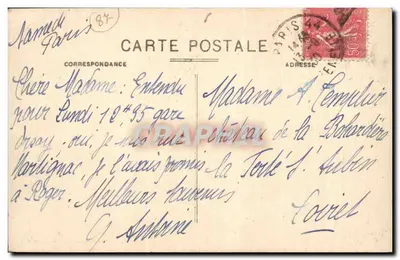 Samedi
Paris
84
CARTE POSTALE
CORRESPONDANCE
ADRESSE
PARIS 44
Chère Madame: Entendu
pour Lundi 12h35 gare
Orsay. oui, je suis rue
Martignac, je l'avais promis
à Roger. Meilleurs souvenirs
G. Antoine
Madame A.
Château de la
la Ferté St Aubin
Loiret